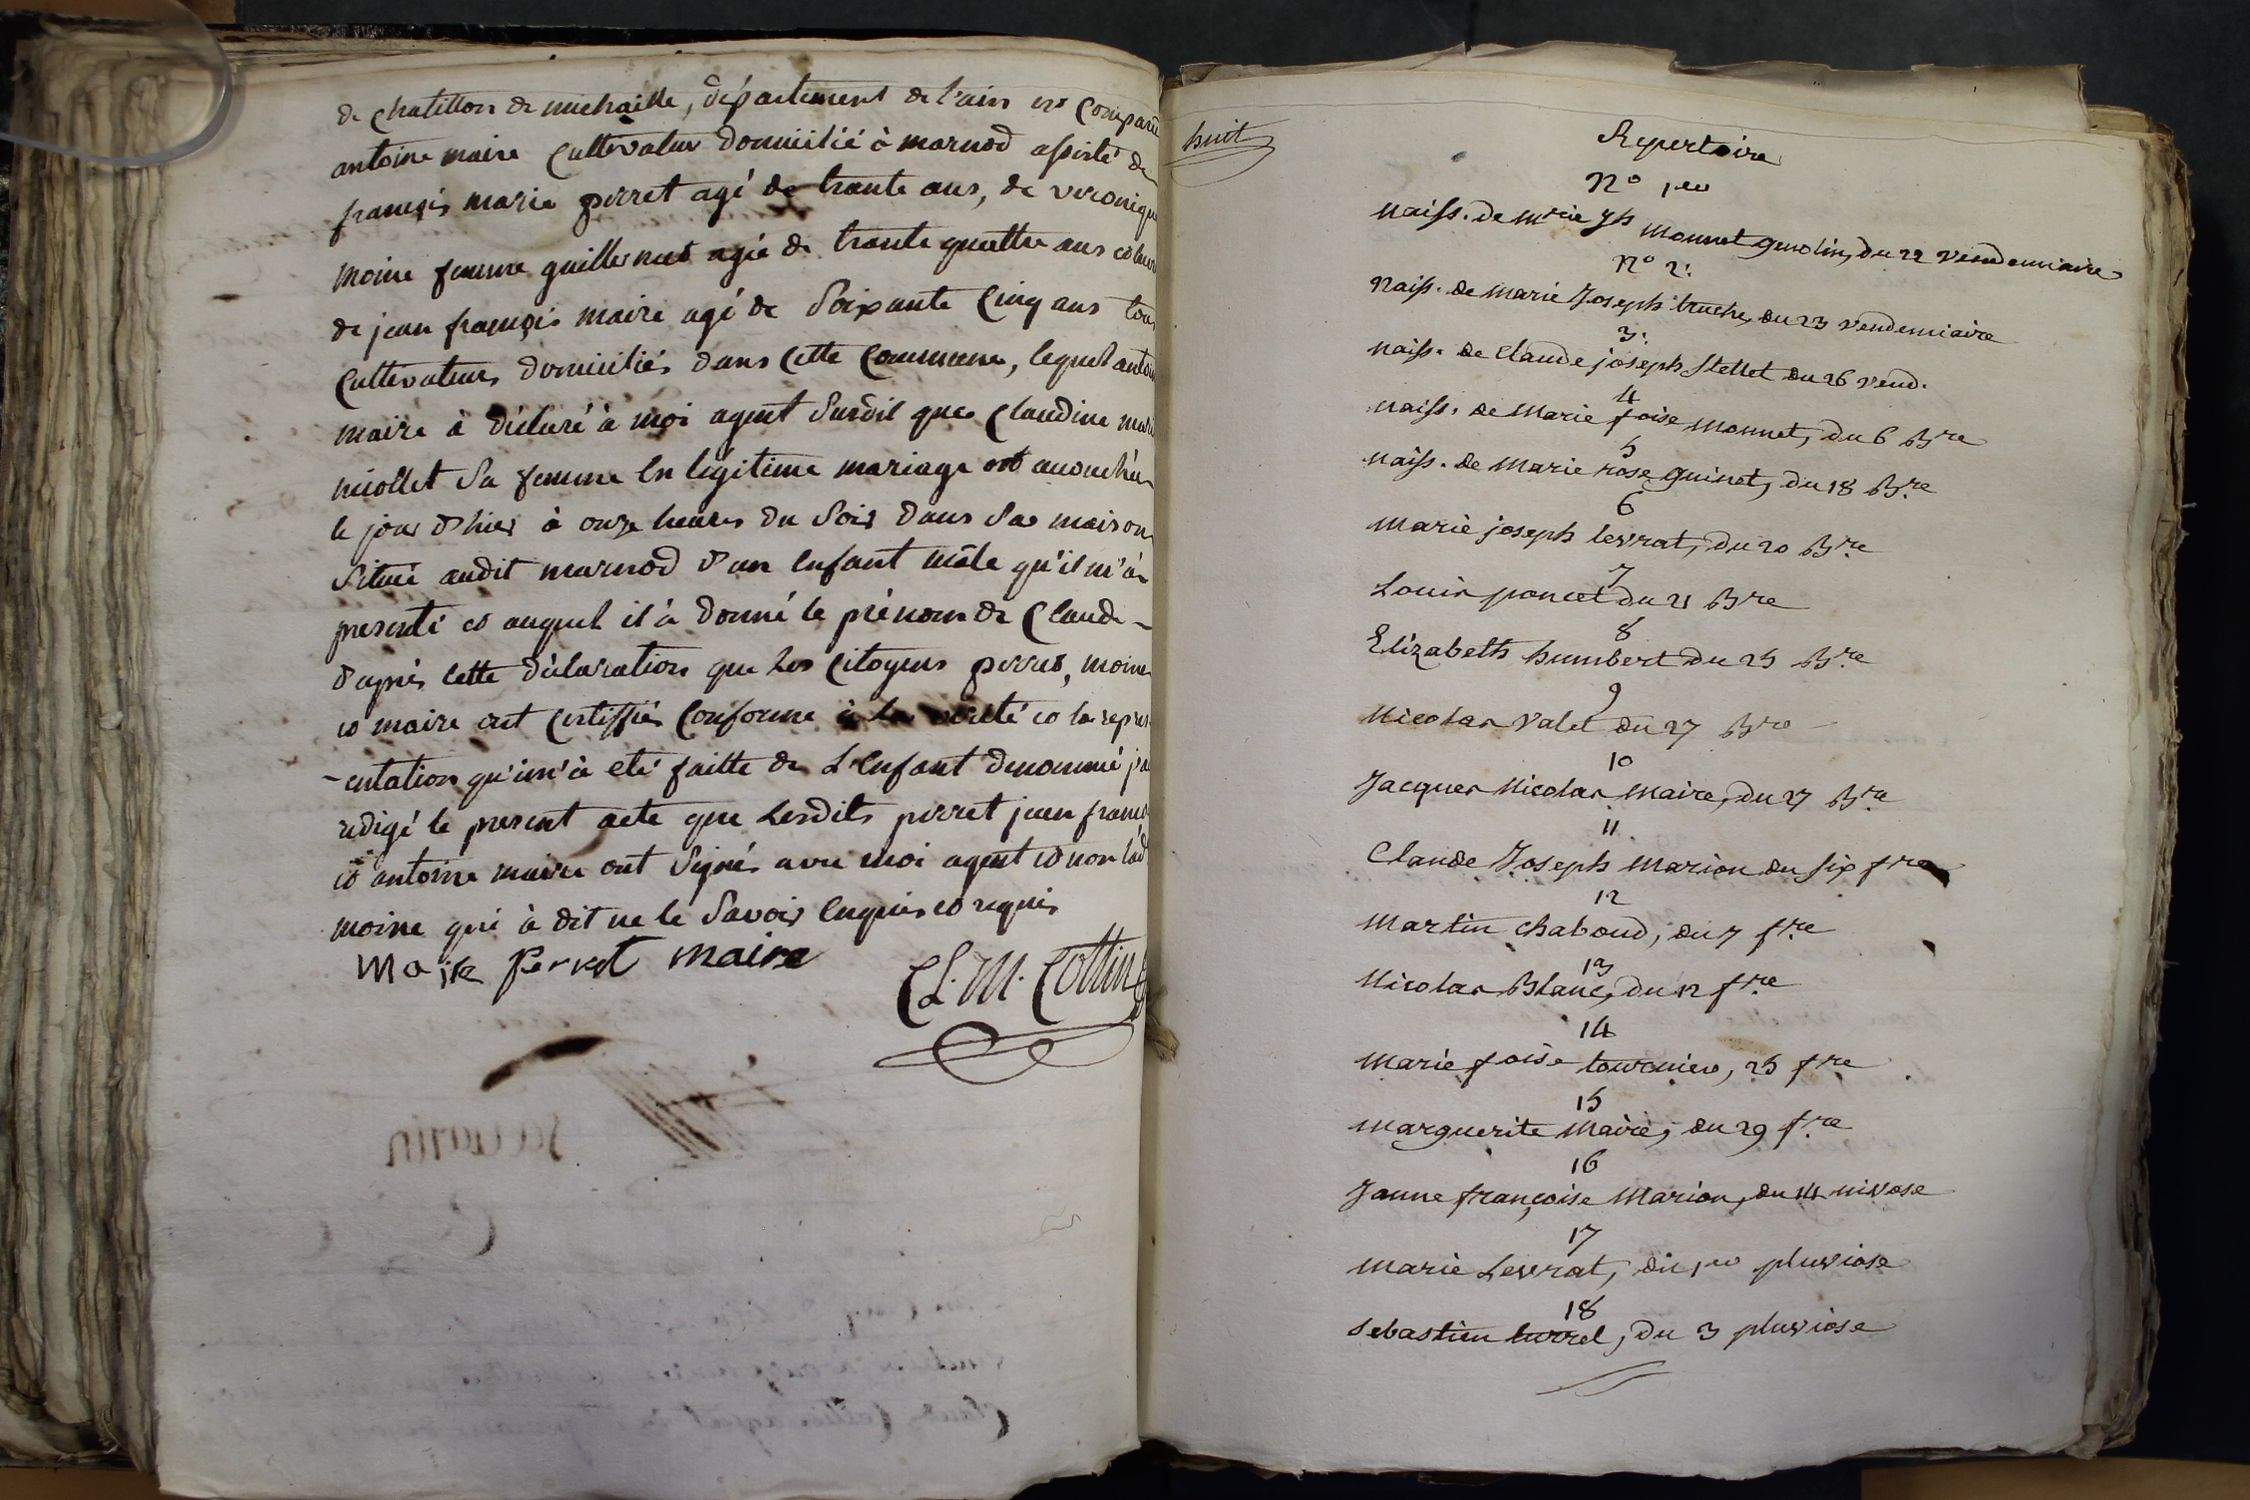 de chatillon de michaille, département de l'ain est Comparu
antoine maire Cultivateur domicilié à marnod assisté de
françois marie perret agé de trante ans, de veronique
moine femme guillermet agée de trante quattre ans et
de jean françois maire agé de Soixante Cinq ans tous
Cultivateurs domiciliés dans Cette Commune, lequel antoine
maire à déclaré à moi agent Susdit que Claudine marie
niollet Sa femme En légitime mariage est accouchée
le jour d'hier à onze heures du Soir dans Sa maison
Située audit marnod d'un Enfant mâle qu'il m'à
presenté et auquel il à donné le prénom de Claude
d'après Cette déclaration que Les Citoyens perret, moine
et maire ont Certiffiés Conforme à La vérité et la repres
-entation qu'im'à eté faitte de L'Enfant denommé j'ai
redigé le present acte que Lesdits perret jean françois
et antoine maire ont Signés avec moi agent et non lad
moine qui à dit ne le Savoir Enquis et requis
Maire Perret maire
CL. M. Cottin
huit
Repertoire
N° 1er
naiss. de Mrie Jh monnet genolin, du 22 vendemiaire
N° 2.
naiss. de marie Joseph truche, du 23 vendemiaire
3.
naiss. de Claude joseph Stellet du 26 vend.
4
naiss. de Marie foise monnet, du 6 Bre
5
naiss. de Marie rose guinet, du 18 Bre
6
Marie joseph levrat, du 20 Bre
7
Louis poncet du 21 Bre
8
Elizabeth humbert du 25 Bre
9
Nicolas valet du 27 Bre
10
Jacques Nicolas Maire, du 27 Bre
11
Claude Joseph Marion du six fre
12
Martin Chaboud, du 7 fre
13
Nicolas Blanc, du 12 fre
14
Marie foise tournier, 25 fre
15
Marguerite Maire, du 29 fre
16
Janne françoise Marion, du 14 nivose
17
Marie Levrat, du 1er pluviose
18
Sebastien turrel, du 3 pluviose